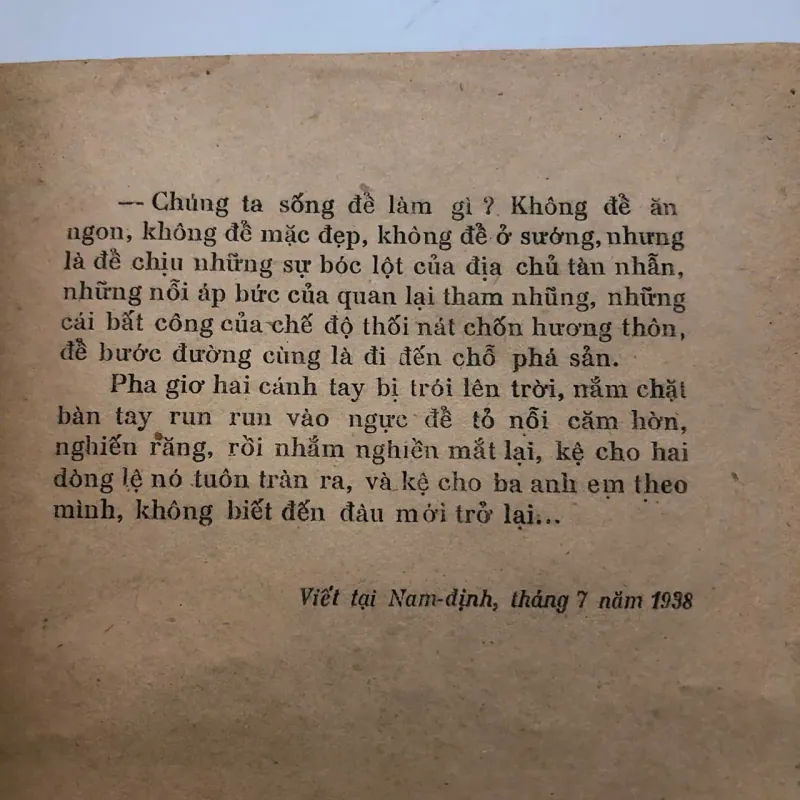 — Chúng ta sống để làm gì ? Không để ăn
ngon, không để mặc đẹp, không để ở sướng, nhưng
là để chịu những sự bóc lột của địa chủ tàn nhẫn,
những nỗi áp bức của quan lại tham nhũng, những
cái bất công của chế độ thối nát chốn hương thôn,
để bước đường cùng là đi đến chỗ phá sản.
Pha giơ hai cánh tay bị trói lên trời, nắm chặt
bàn tay run run vào ngực để tỏ nỗi căm hờn,
nghiến răng, rồi nhắm nghiền mắt lại, kệ cho hai
dòng lệ nó tuôn tràn ra, và kệ cho ba anh em theo
mình, không biết đến đâu mới trở lại...
Viết tại Nam-định, tháng 7 năm 1938